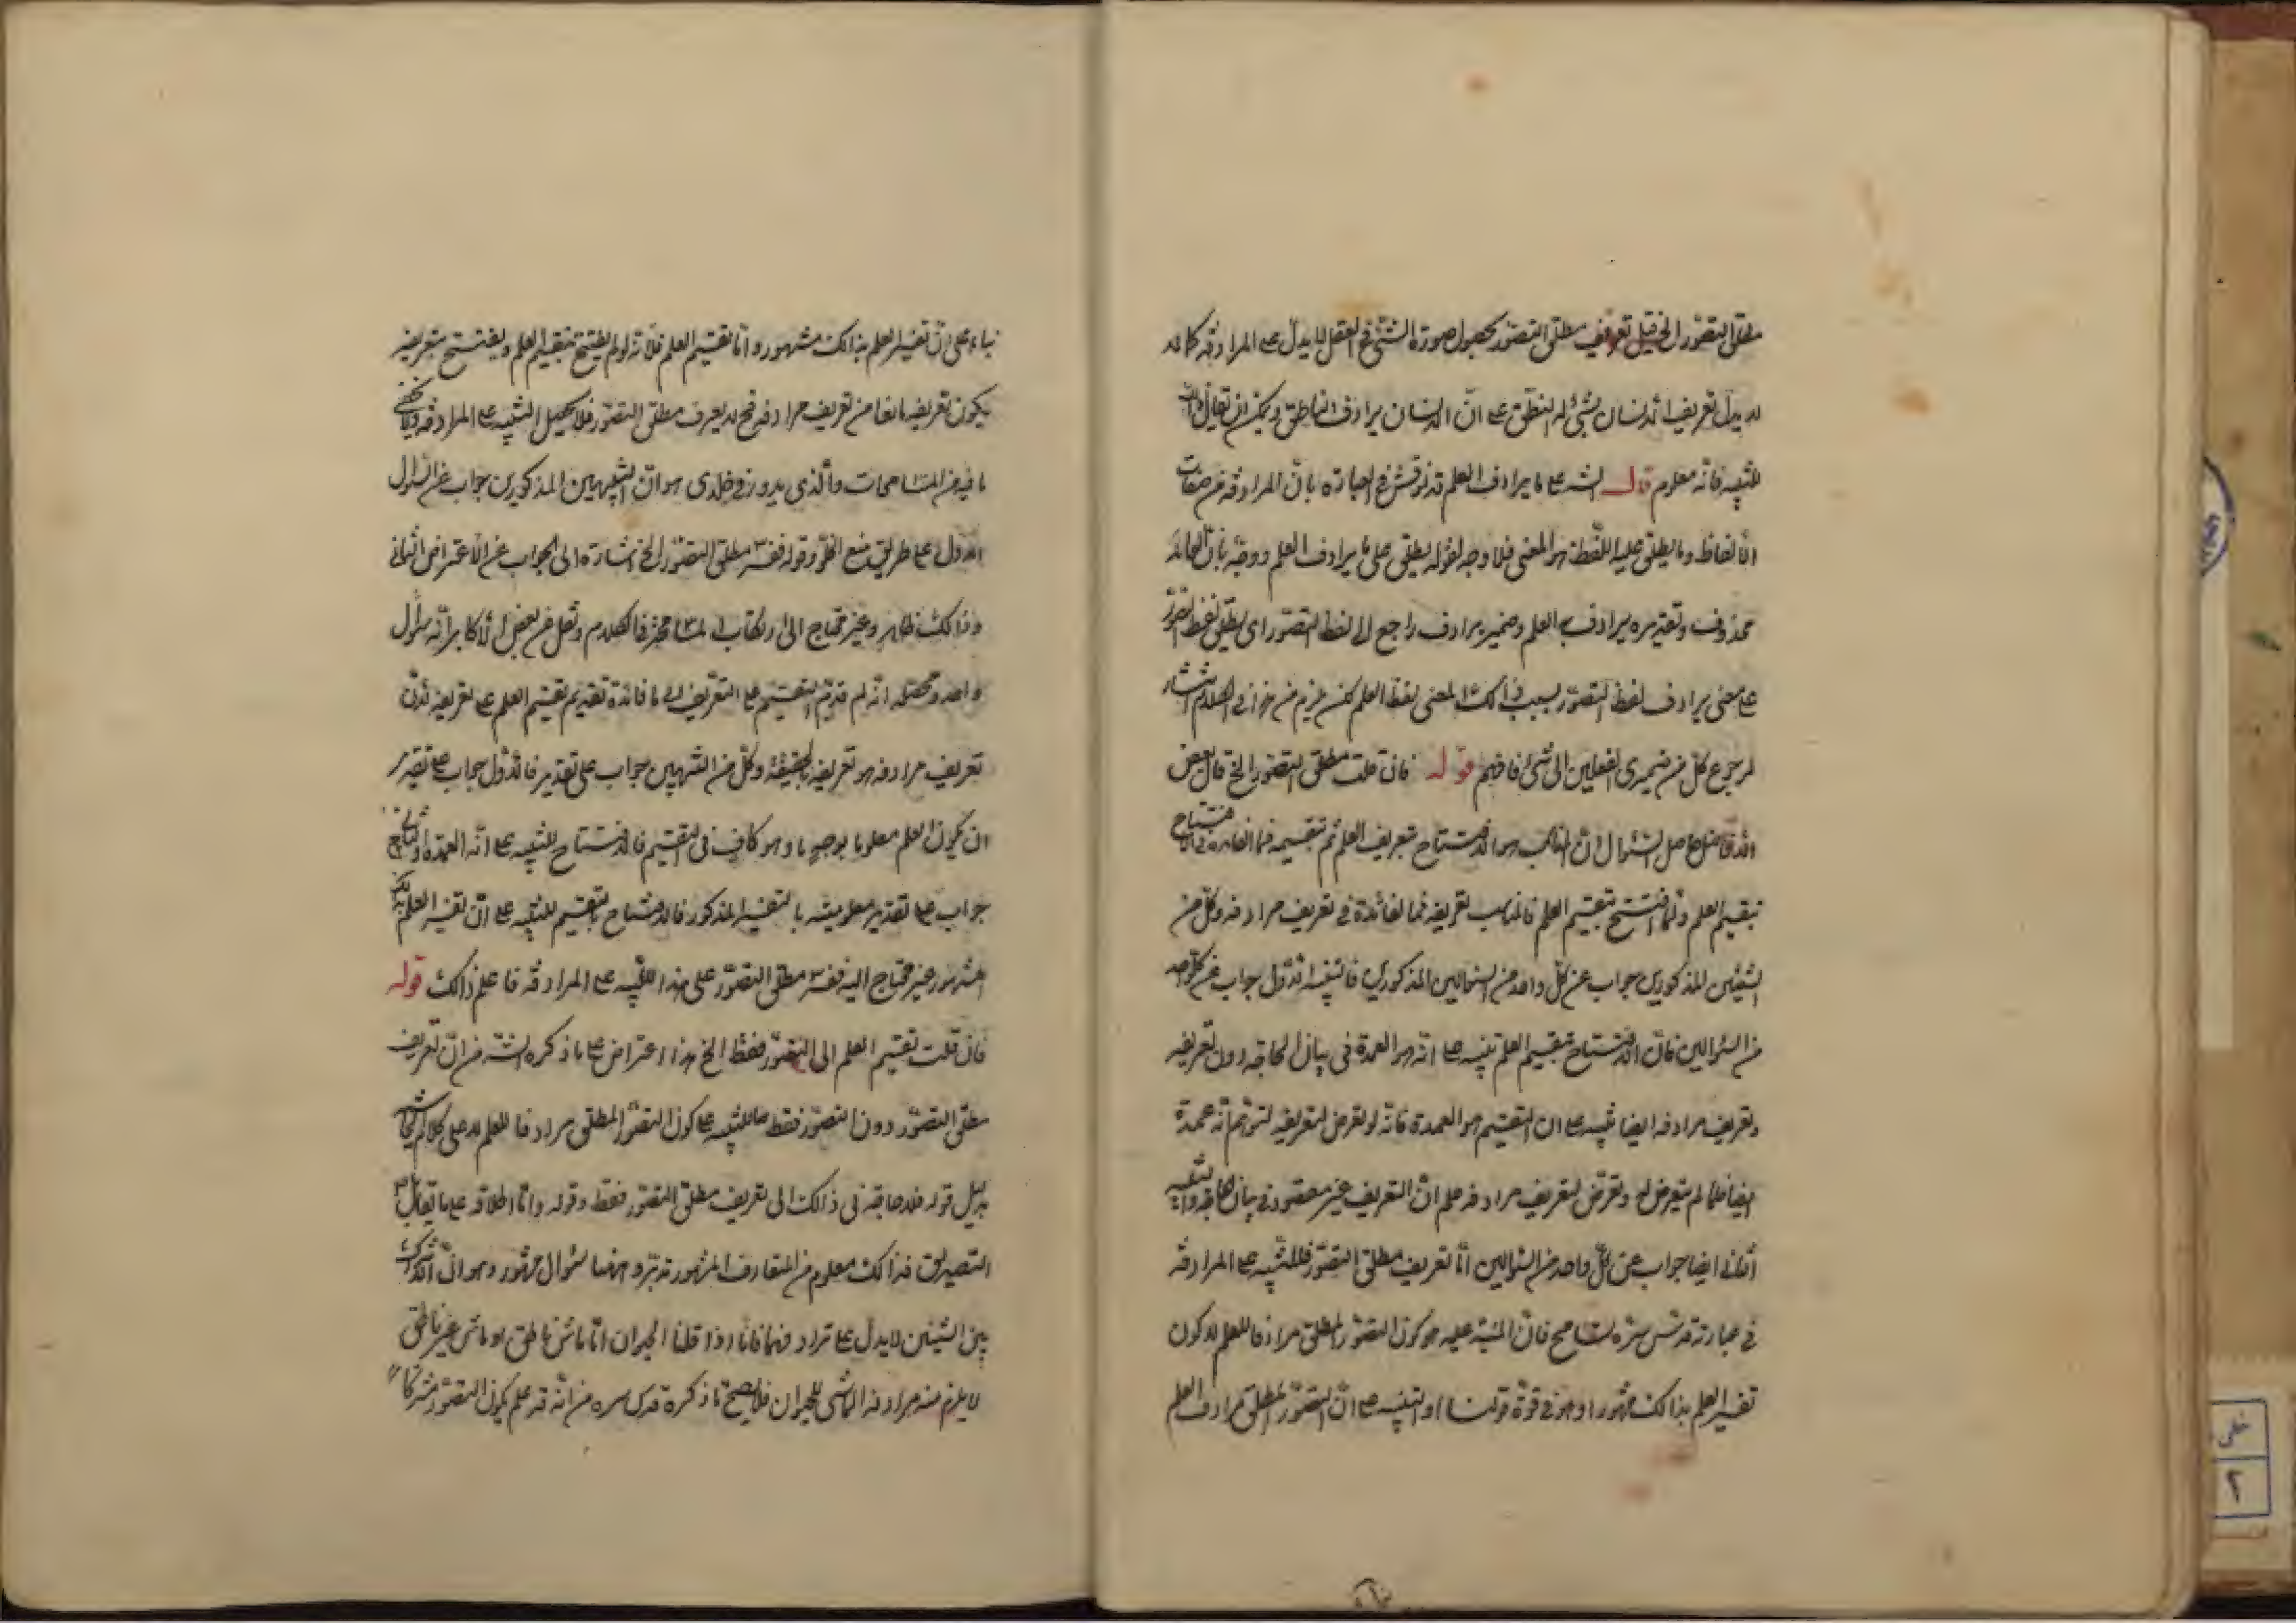 مطلق التصور الخ قيل تعريف مطلق التصور بحصول صورة الشئ فى العقل لا يدل على المرادفة كما انه
لا يدل تعريف الانسان بشئ له النطق على ان الانسان يرادف الناطق ويمكن ان يقال
للتنبيه فانه معلوم قوله الش على ما يرادف العلم قد نوقش فى العبارة بان المرادفة من صفات
الالفاظ وما يطلق عليه اللفظ هو المعنى فلا وجه لقوله يطلق على ما يرادف العلم ووجه بان العائد
محذوف وتقديره يرادف به العلم وضمير يرادف راجع الى لفظ التصور اى يطلق لفظ التصور
على معنى يرادف لفظ التصور بسبب ذالك المعنى لفظ العلم لكن يلزم من هذا فى الكلام انتشار
لرجوع كل من ضميرى الفعلين الى شئ فافهم قوله فان قلت مطلق التصور الخ قال بعض
الافاضل حاصل السئوال ان المناسب هو الافتتاح بتعريف العلم ثم تقسيمه فما الفائدة فى الافتتاح
بتقسيم العلم ولما افتتح بتقسيم العلم فالمناسب تعريفه فما الفائدة فى تعريف مرادفه وكل من
الشيئين المذكورين جواب عن كل واحد من السئوالين المذكورين فالتنبيه الاول جواب عن كل واحد
من السئوالين فان الافتتاح بتقسيم العلم تنبيه على انه هو العمدة فى بيان الحاجة دون تعريفه
وتعريف مرادفه ايضا تنبيه على ان التقسيم هو العمدة فانه لو تعرض لتعريفه لتوهم انه عمدة
ايضا فلما لم يتعرض له وتعرض لتعريف مرادفه علم ان التعريف غير مقصود فى بيان الحاجة والتنبيه
الثانى ايضا جواب عن كل واحد من السئوالين اما تعريف مطلق التصور فللتنبيه على المرادفة
فى عبارته قدس سره تسامح فان المنبه عليه هو كون التصور المطلق مرادفا للعلم لا كون
تفسير العلم بذالك مشهورا وهو فى قوة قولنا والتنبيه على ان التصور المطلق مرادف العلم
بناء على ان تفسير العلم بذالك مشهور واما تقسيم العلم فلانه لو لم يفتتح بتقسيم العلم ويفتتح بتعريفه
يكون تعريفه مانعا من تعريف مرادفه فح لا يعرف مطلق التصور فلا يحصل التنبيه على المرادفة ولا يخفى
ما فيه من المسامحات والذى يدور فى خلدى هو ان التنبيهين المذكورين جواب عن السئوال
الاول على طريق منع الخلو وقوله ففسر مطلق التصور الخ اشارة الى الجواب عن الاعتراض الثانى
وذالك ظاهر وغير محتاج الى ارتكاب المسامحة فى الكلام ونقل عن بعض الاكابر انه سئوال
واحد ومحصله انه لم قدم التقسيم على التعريف اى ما فائدة تقديم تقسيم العلم على تعريفه لان
تعريف مرادفه هو تعريفه بالحقيقة وكل من التنبيهين جواب على تقدير فالاول جواب على تقدير
ان يكون العلم معلوما بوجه ما وهو كاف فى التقسيم فالافتتاح للتنبيه على انه العمدة والثانى
جواب على تقدير معلوميته بالتفسير المذكور فالافتتاح بالتقسيم للتنبيه على ان تفسير العلم بذلك
مشهور غير محتاج اليه ففسر مطلق التصور على هذا للتنبيه على المرادفة فاعلم ذالك قوله
فان قلت تقسيم العلم الى التصور فقط الخ هذا اعتراض على ما ذكره الش من ان تعريف
مطلق التصور دون التصور فقط للتنبيه على كون التصور المطلق مرادفا للعلم لا على كلام
بدليل قوله فلا حاجة فى ذالك الى تعريف مطلق التصور فقط وقوله واما اطلاقه على ما يقابل
التصديق فذالك معلوم من المتعارف المشهور تدبر وههنا سئوال مشهور وهو ان اشتراك
بين الشيئين لا يدل على ترادفهما فانا اذا قلنا الحيوان اما ماش ناطق او ماش غير ناطق
لا يلزم منه مرادفة الماشى للحيوان فلا يصح ما ذكره قدس سره من انه قد علم كون التصور مشتركا